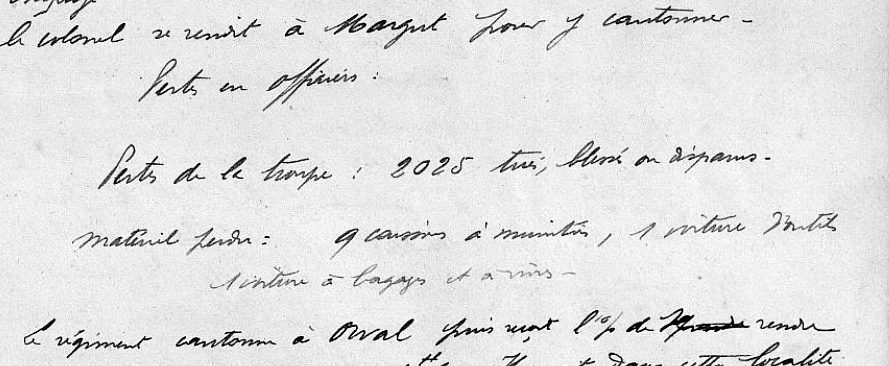 le colonel se rendit à Margut pour y cantonner -
Pertes en officiers :
Pertes de la troupe : 2025 tués, blessés ou disparus -
matériel perdu : 9 caissons à munitions, 1 voiture d'outils
1 voiture à bagages et à vivres -
Le régiment cantonne à Orval puis reçoit l' de rendre
dans cette localité